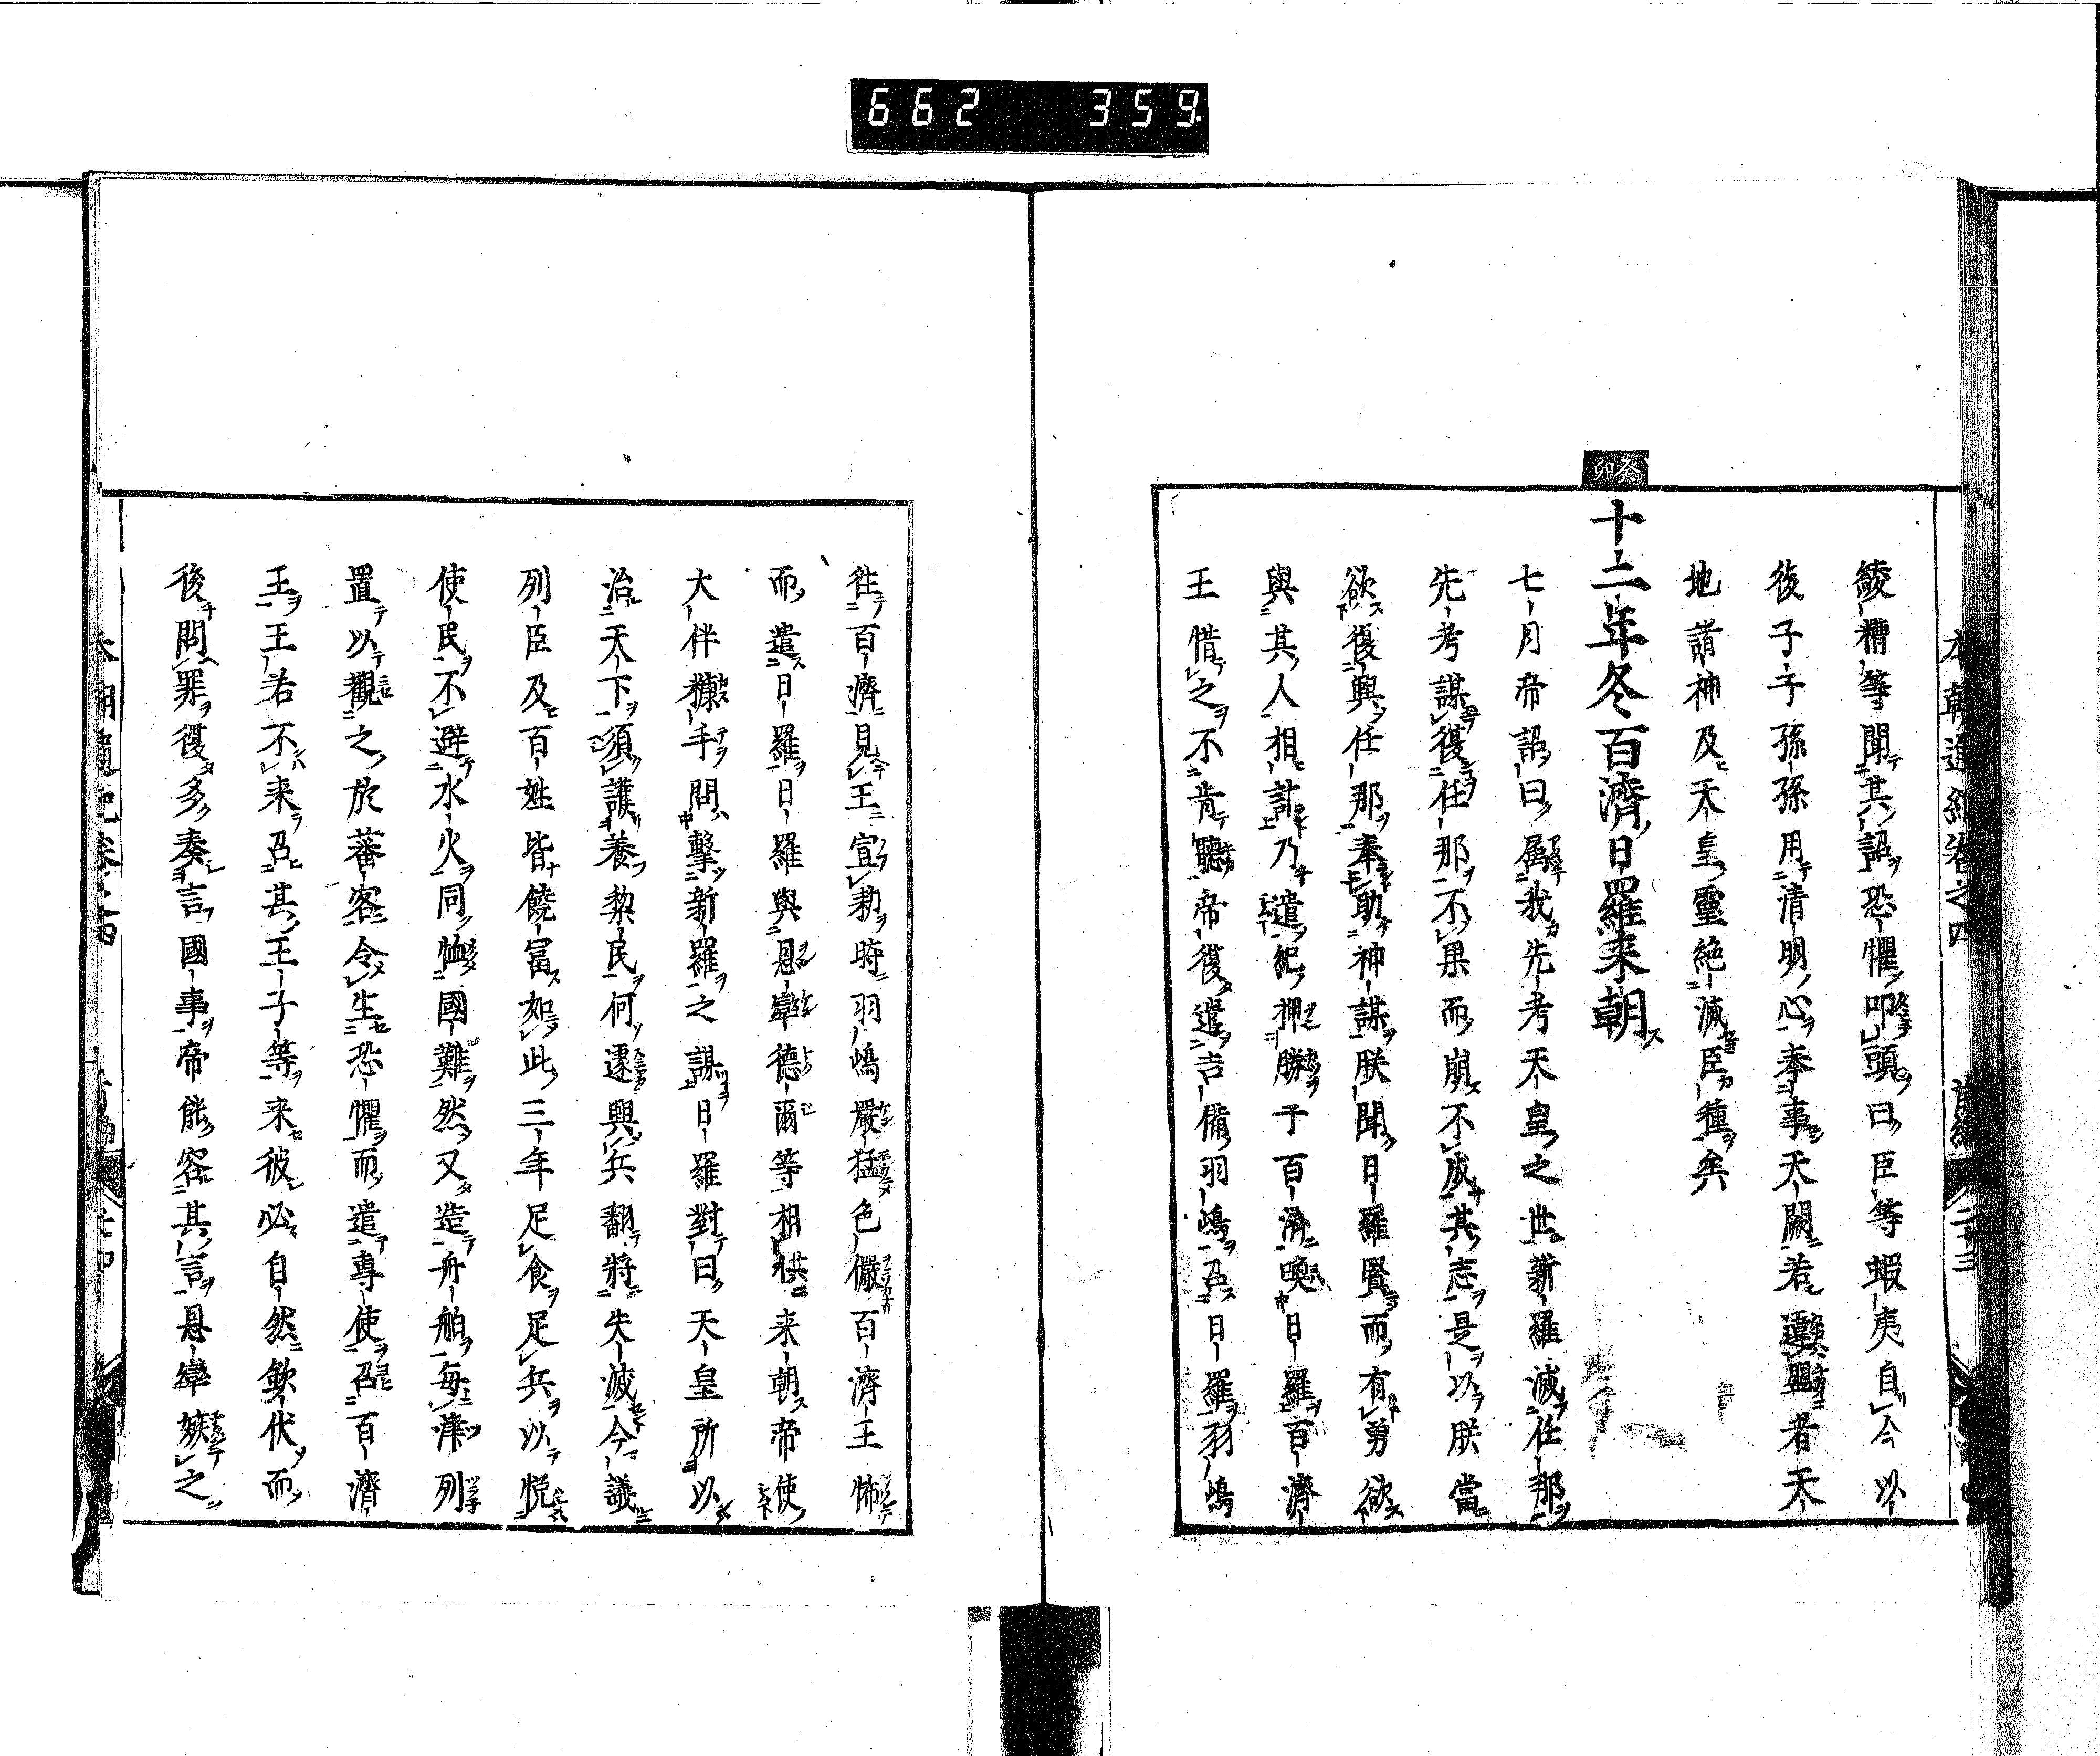 662 359
本朝通紀卷之四 前編 二十三
綾糟等聞其詔恐懼叩頭曰臣等蝦夷自今以
後子子孫孫用清明心奉事天闕若違盟者天
地諸神及天皇靈絶滅臣種矣
癸卯
十二年冬百濟日羅来朝
七月帝詔曰属我先考天皇之世新羅滅任那
先考謀復任那不果而崩不成其志是以朕當
欲復興任那奉助神謀朕聞日羅賢而有勇欲
與其人相計乃遣紀押勝于百濟喚日羅百濟
王惜之不肯聽帝復遣吉備羽嶋召日羅羽嶋
往百濟見王宣勅時羽嶋嚴猛色儼百濟王怖
而遣日羅日羅與恩率德爾等相供来朝帝使
大伴糠手問擊新羅之謀日羅對曰天皇所以
治天下須護養黎民何遽興兵翻將失滅今議
列臣及百姓皆饒冨如此三年足食足兵以悦
使民不避水火同恤國難然又造舟舶每津列
置以觀之於蕃客令生恐懼而遣專使召百濟
王王若不来召其王子等来彼必自然欽伏而
後問罪復多奏言國事帝能容其言恩率嫉之
本朝通紀卷之四